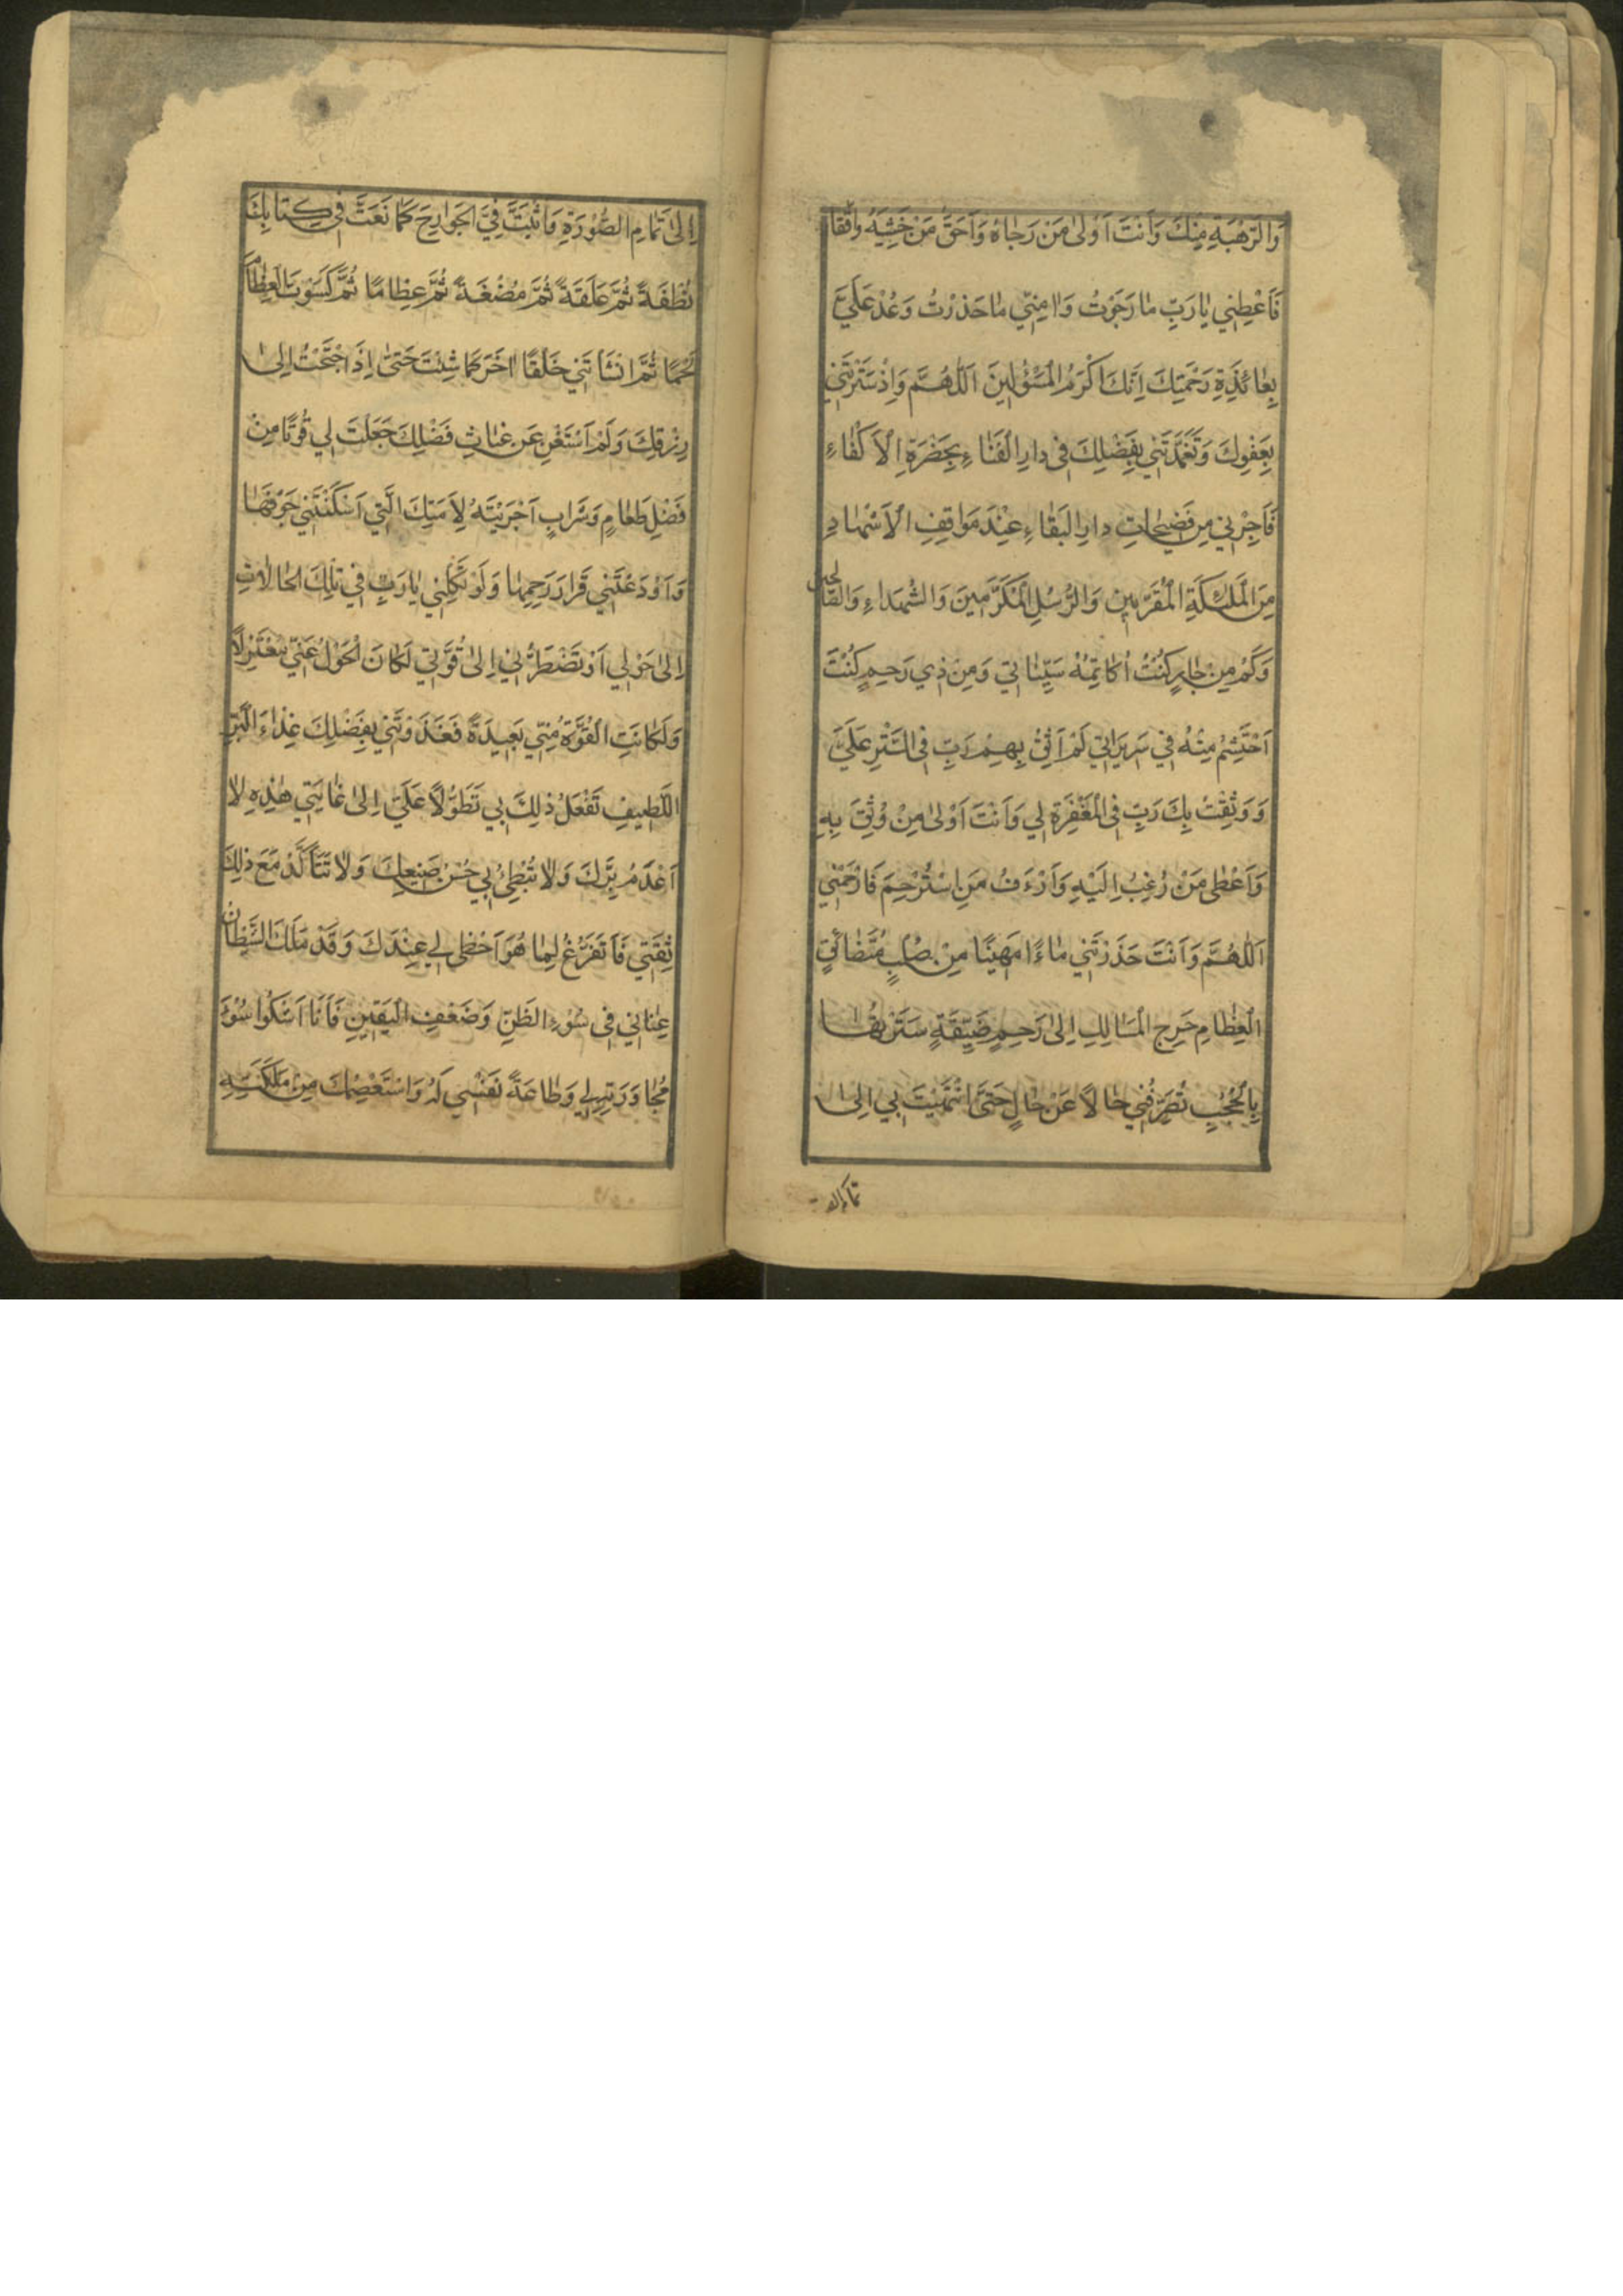 وَالرَّهْبَةِ مِنْكَ وَاَنْتَ اَوْلىٰ مَنْ رَجٰاهُ وَاَحَقُّ مَنْ خَشِيَهُ وَاتَّقاٰ
فَاَعْطِنِي يٰا رَبِّ مٰا رَجَوْتُ وَاٰمِنِّي مٰا حَذِرْتُ وَعُدْ عَلَيَّ
بِعٰائِدَةِ رَحْمَتِكَ اِنَّكَ اَكْرَمُ الْمَسْؤُلِينَ اَللّٰهُمَّ وَاِذْ سَتَرْتَنِي
بِعَفْوِكَ وَتَغَمَّدْتَنِي بِفَضْلِكَ فِى دارِ الْفَنٰاءِ بِحَضْرَةِ الْاَكْفٰاءِ
فَاَجِرْنِي مِنْ فَضِيحٰاتِ دارِ الْبَقٰاءِ عِنْدَ مَوٰاقِفِ الْاَشْهٰادِ
مِنَ الْمَلٰئِكَةِ الْمُقَرَّبِينَ وَالرُّسُلِ الْمُكَرَّمِينَ وَالشُّهَدٰاءِ وَالصّٰالِحِينَ
وَكَمْ مِنْ جٰارٍ كُنْتُ اُكٰاتِمُهُ سَيِّئٰاتِي وَمِنْ ذِي رَحِمٍ كُنْتُ
اَحْتَشِمُ مِنْهُ فِي سَرِيرَاتِي لَمْ اَثِقْ بِهِمْ رَبِّ فِى السَّتْرِ عَلَيَّ
وَوَثِقْتُ بِكَ رَبِّ فِى الْمَغْفِرَةِ لِي وَاَنْتَ اَوْلىٰ مَنْ وُثِقَ بِهِ
وَاَعْطٰى مَنْ رُغِبَ اِلَيْهِ وَاَرْءَفُ مَنِ اسْتُرْحِمَ فَارْحَمْنِي
اَللّٰهُمَّ وَاَنْتَ حَدَرْتَنِي مٰاءً مَهِينًا مِنْ صُلْبٍ مُتَضٰائِقِ
الْعِظٰامِ حَرِجِ الْمَسٰالِكِ اِلىٰ رَحِمٍ ضَيِّقَةٍ سَتَرْتَهٰا
بِالْحُجُبِ تُصَرِّفُنِي حٰالًا عَنْ حٰالٍ حَتَّى انْتَهَيْتَ بِي اِلىٰ
اِلىٰ تَمٰامِ الصُّوْرَةِ وَاَثْبَتَّ فِيَّ الْجَوٰارِحَ كَمٰا نَعَتَّ فِي كِتٰابِكَ
نُطْفَةً ثُمَّ عَلَقَةً ثُمَّ مُضْغَةً ثُمَّ عِظٰامًا ثُمَّ كَسَوْتَ الْعِظٰامَ
لَحْمًا ثُمَّ اَنْشَأْتَنِي خَلْقًا اٰخَرَ كَمٰا شِئْتَ حَتىٰ اِذَا احْتَجْتُ اِلىٰ
رِزْقِكَ وَلَمْ اَسْتَغْنِ عَنْ غِيٰاثِ فَضْلِكَ جَعَلْتَ لِي قُوتًا مِنْ
فَضْلِ طَعٰامٍ وَشَرٰابٍ اَجْرَيْتَهُ لِاَمَتِكَ الَّتِي اَسْكَنْتَنِي جَوْفَهٰا
وَاَوْدَعْتَنِي قَرٰارَ رَحِمِهٰا وَلَوْ تَكِلْنِي يٰا رَبِّ فِي تِلْكَ الْحٰالاٰتِ
اِلىٰ حَوْلِي اَوْ تَضْطَرُّنِي اِلىٰ قُوَّتِي لَكٰانَ الْحَوْلُ عَنِّي مُعْتَزِلًا
وَلَكٰانَتِ الْقُوَّةُ مِنِّي بَعِيدَةً فَغَذَوْتَنِي بِفَضْلِكَ غِذٰاءَ الْبَرِّ
اللَّطِيفِ تَفْعَلُ ذٰلِكَ بِي تَطَوُّلًا عَلَيَّ اِلىٰ غٰايَتِي هٰذِهِ لاٰ
اَعْدَمُ بِرَّكَ وَلاٰ يُبْطِئُ بِي حُسْنُ صَنِيعِكَ وَلاٰ تَتَأَكَّدُ مَعَ ذٰلِكَ
ثِقَتِي فَاَتَفَرَّغُ لِمٰا هُوَ اَحْظٰى لِي عِنْدَكَ وَقَدْ مَلَكَ الشَّيْطٰانُ
عِنٰانِي فِى سُوْءِ الظَّنِّ وَضَعْفِ الْيَقِينِ فَاَنَا اَشْكُوا سُوْءَ
مُجٰاوَرَتِهِ لِي وَطٰاعَةَ نَفْسِي لَهُ وَاسْتَعْصِمُكَ مِنْ مَلَكَتِهِ